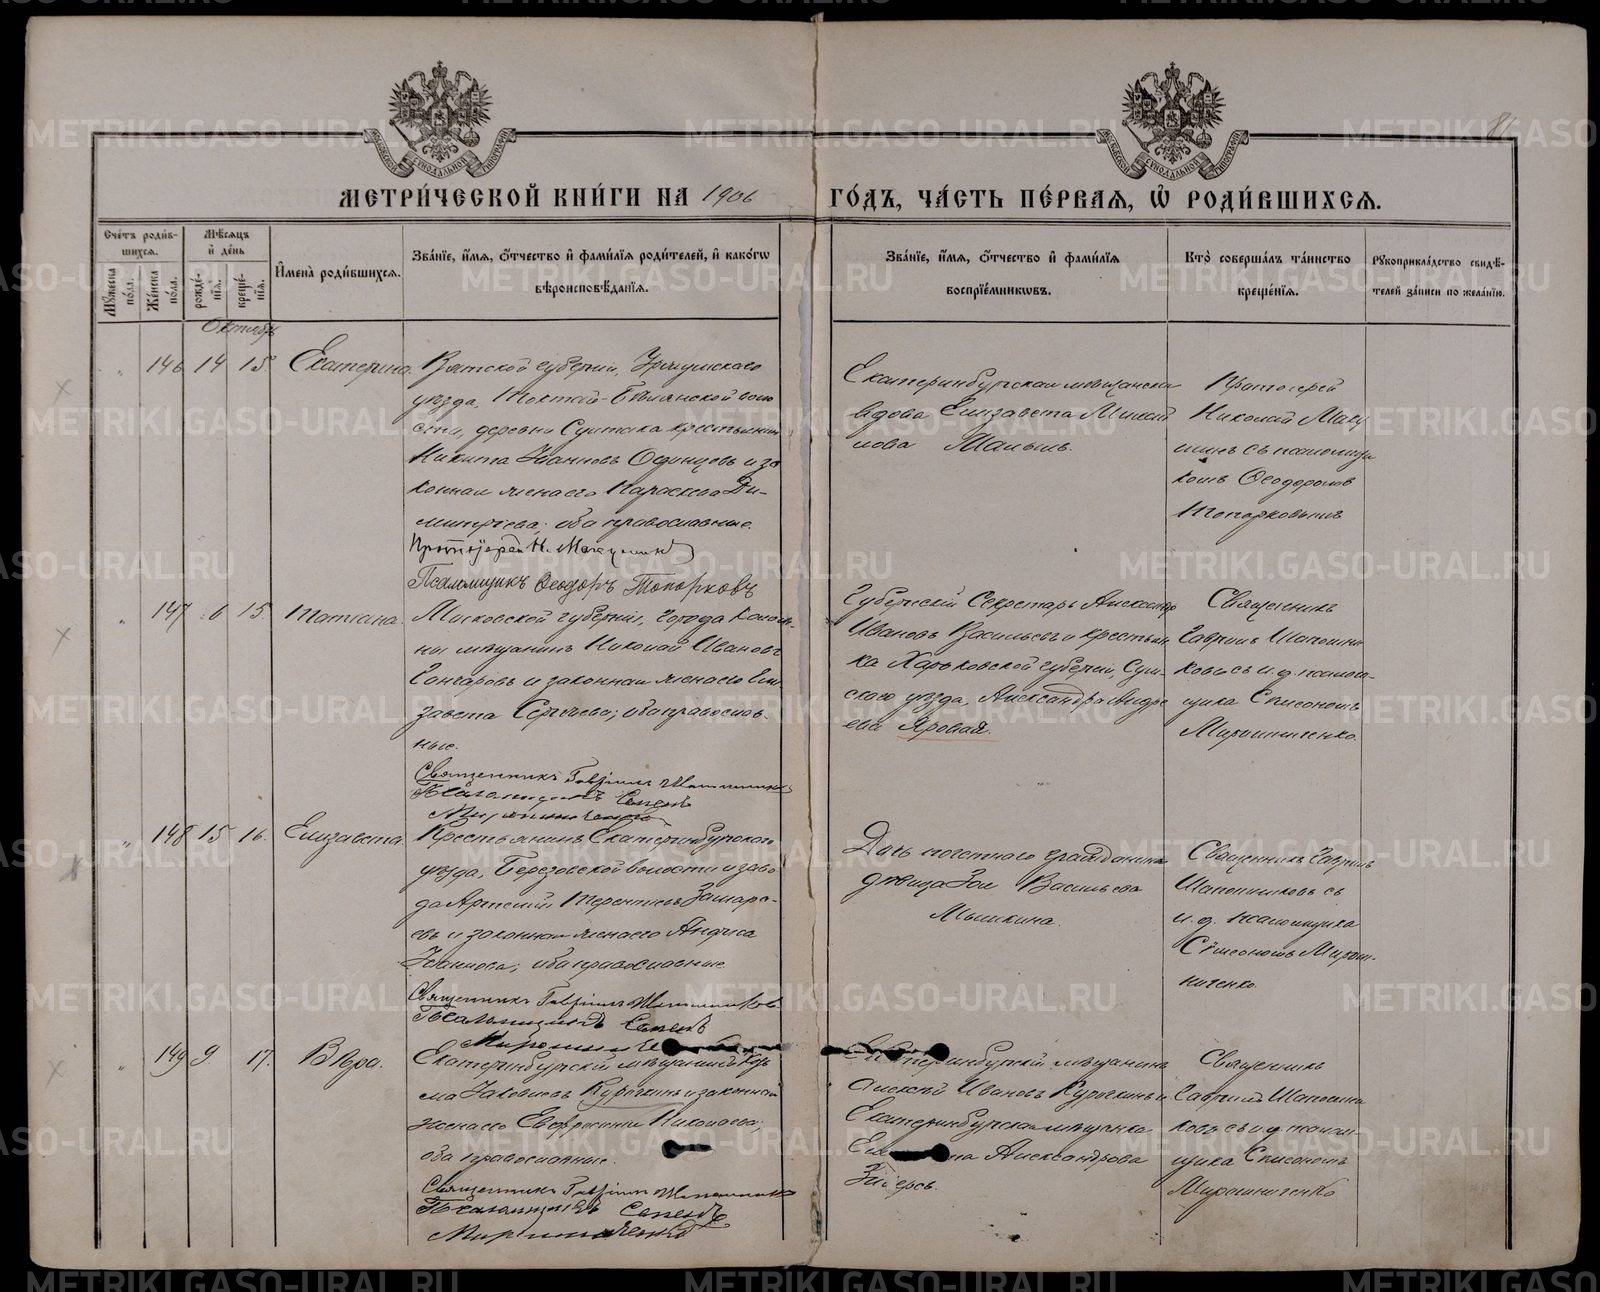 МЕТРИ́ЧЕСКОЙ КНИ́ГИ НА 1906 ГО́ДЪ, ЧА́СТЬ ПЕ́РВАѦ, Ѡ҆ РОДИ́ВШИХСѦ.
Сче́тъ роди́в-
шихсѧ.
Мѣ́сѧцъ
и҆ де́нь
Мꙋ́жеска по́ла.
Же́нска по́ла.
рожде́-
нїѧ.
креще́-
нїѧ.
И҆мена̀ роди́вшихсѧ.
Зва́нїе, и҆́мѧ, ѻ҆́тчество и҆ фами́лїѧ роди́телей, и҆ како́гѡ
вѣроисповѣ́данїѧ.
Зва́нїе, и҆́мѧ, ѻ҆́тчество и҆ фами́лїѧ
воспрїе́мникѡвъ.
Кто̀ соверша́лъ та́инство
креще́нїѧ.
Рꙋкоприкла́дство свидѣ́-
телей за́писи по жела́нїю.
Октябрь
146 14 15. Екатерина.
Вятской губернiи, Уржумскаго
уѣзда, Токтай-Бѣлякской воло
сти, деревни крестьянинъ
Никита Iоанновъ Одинцовъ и за
конная жена его Параскева Ди-
митрiева; оба православные.
Протоiерей Н. Макушинъ
Псаломщикъ Ѳеодоръ Топорковъ
Екатеринбургская мѣщанская
вдова Елизавета Михай
лова
Протоiерей
Николай Маку
шинъ съ псаломщи
комъ Ѳеодоромъ
Топорковымъ
147 6 15. Татiана.
Московской губернiи, города Колом-
ны мѣщанинъ Николай Ивановъ
Гончаровъ и законная жена его Ели
завета Сергѣева; оба православ-
ные.
Священникъ Гаврiилъ
Псаломщикъ Семенъ
Мирошниченко
Губернскiй Секретарь Александръ
Ивановъ Васильевъ и крестьян
ка Харьковской губернiи, Сум-
скаго уѣзда, Александра Андре
ева Яровая.
Священникъ
Гаврiилъ Шапошни
ковъ съ и. д. псалом-
щика Симеономъ
Мирошниченко.
148 15 16. Елизавета.
Крестьянинъ Екатеринбургскаго
уѣзда, Березовской волости и заво
да Арсенiй Терентьевъ
и законная жена его Анфиса
Iоаннова; оба православные
Священникъ Гаврiилъ Шапошниковъ
Псаломщикъ Семенъ
Дочь почетнаго гражданина
дѣвица Зоя Васильева
Мышкина.
Священникъ Гаврiилъ
Шапошниковъ съ
и. д. псаломщика
Симеономъ Мирош-
ниченко.
149 9 17. Вѣра.
Екатеринбургскiй мѣщанинъ Кузь
ма Iаковлевъ Курочкинъ и законная
жена его Евфросинiя Николаева;
оба православные.
Священникъ Гаврiилъ
Псаломщикъ Семенъ
Мирошниченко
Екатеринбургскiй мѣщанинъ
Алексѣй Ивановъ Курочкинъ и
Екатеринбургская мѣщанка
Александрова
Священникъ
Гаврiилъ Шапошни
ковъ съ и. д. псалом-
щика Симеономъ
Мирошниченко
METRIKI.GASO-URAL.RU